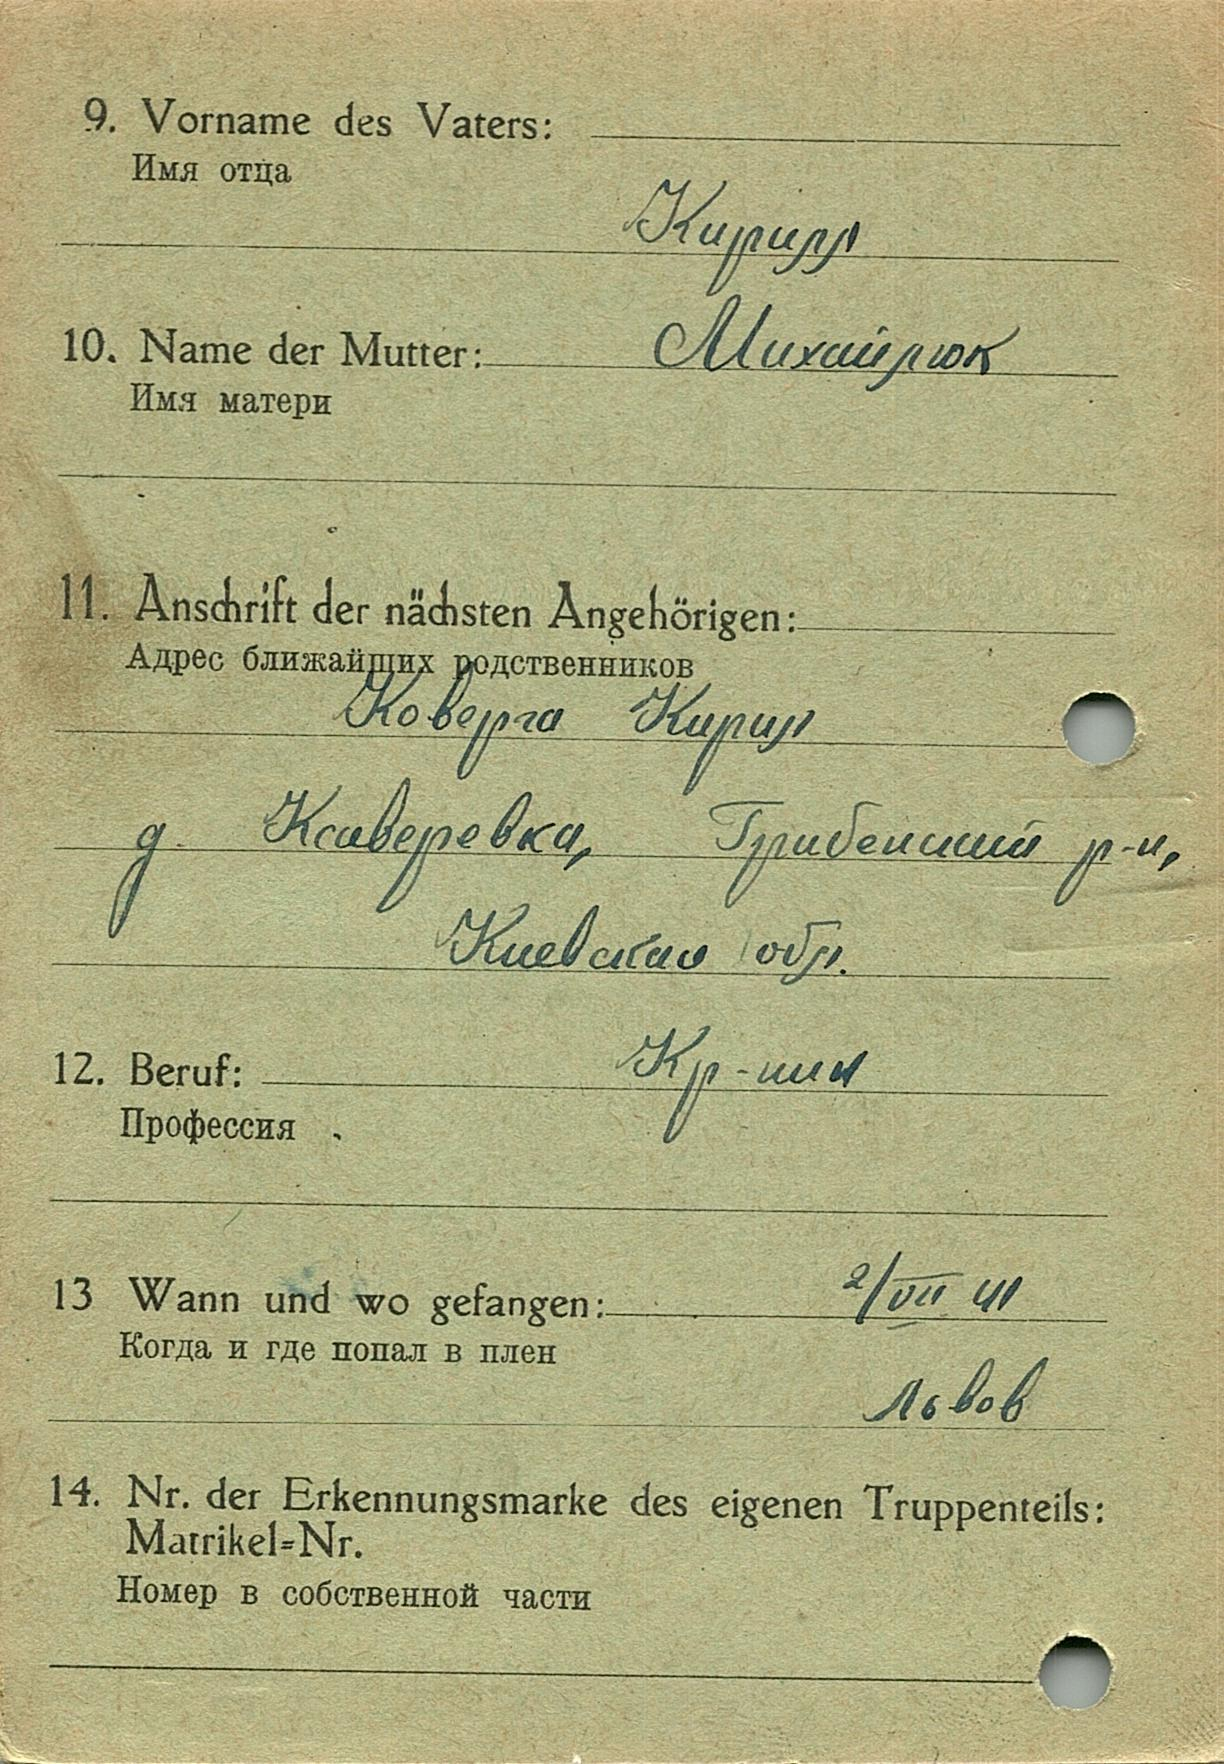 9. Vorname des Vaters:
Имя отца
Кирилл
10. Name der Mutter: Михайлюк
Имя матери
11. Anschrift der nächsten Angehörigen:
Адрес ближайших родственников
Коверга Кирил
д. Ксаверевка, Гребенский р-н,
Киевская обл.
12. Beruf: Кр-нин
Профессия
13 Wann und wo gefangen: 2/VII 41
Когда и где попал в плен
Львов
14. Nr. der Erkennungsmarke des eigenen Truppenteils:
Matrikel=Nr.
Номер в собственной части